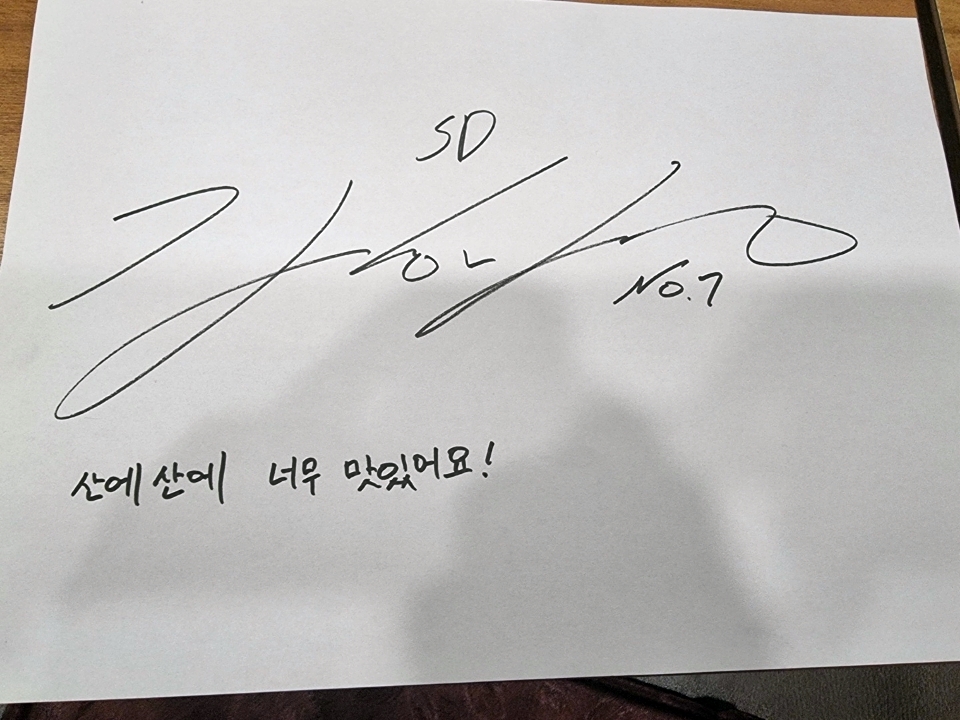 SD
No.7
산에 산에 너무 맛있어요!